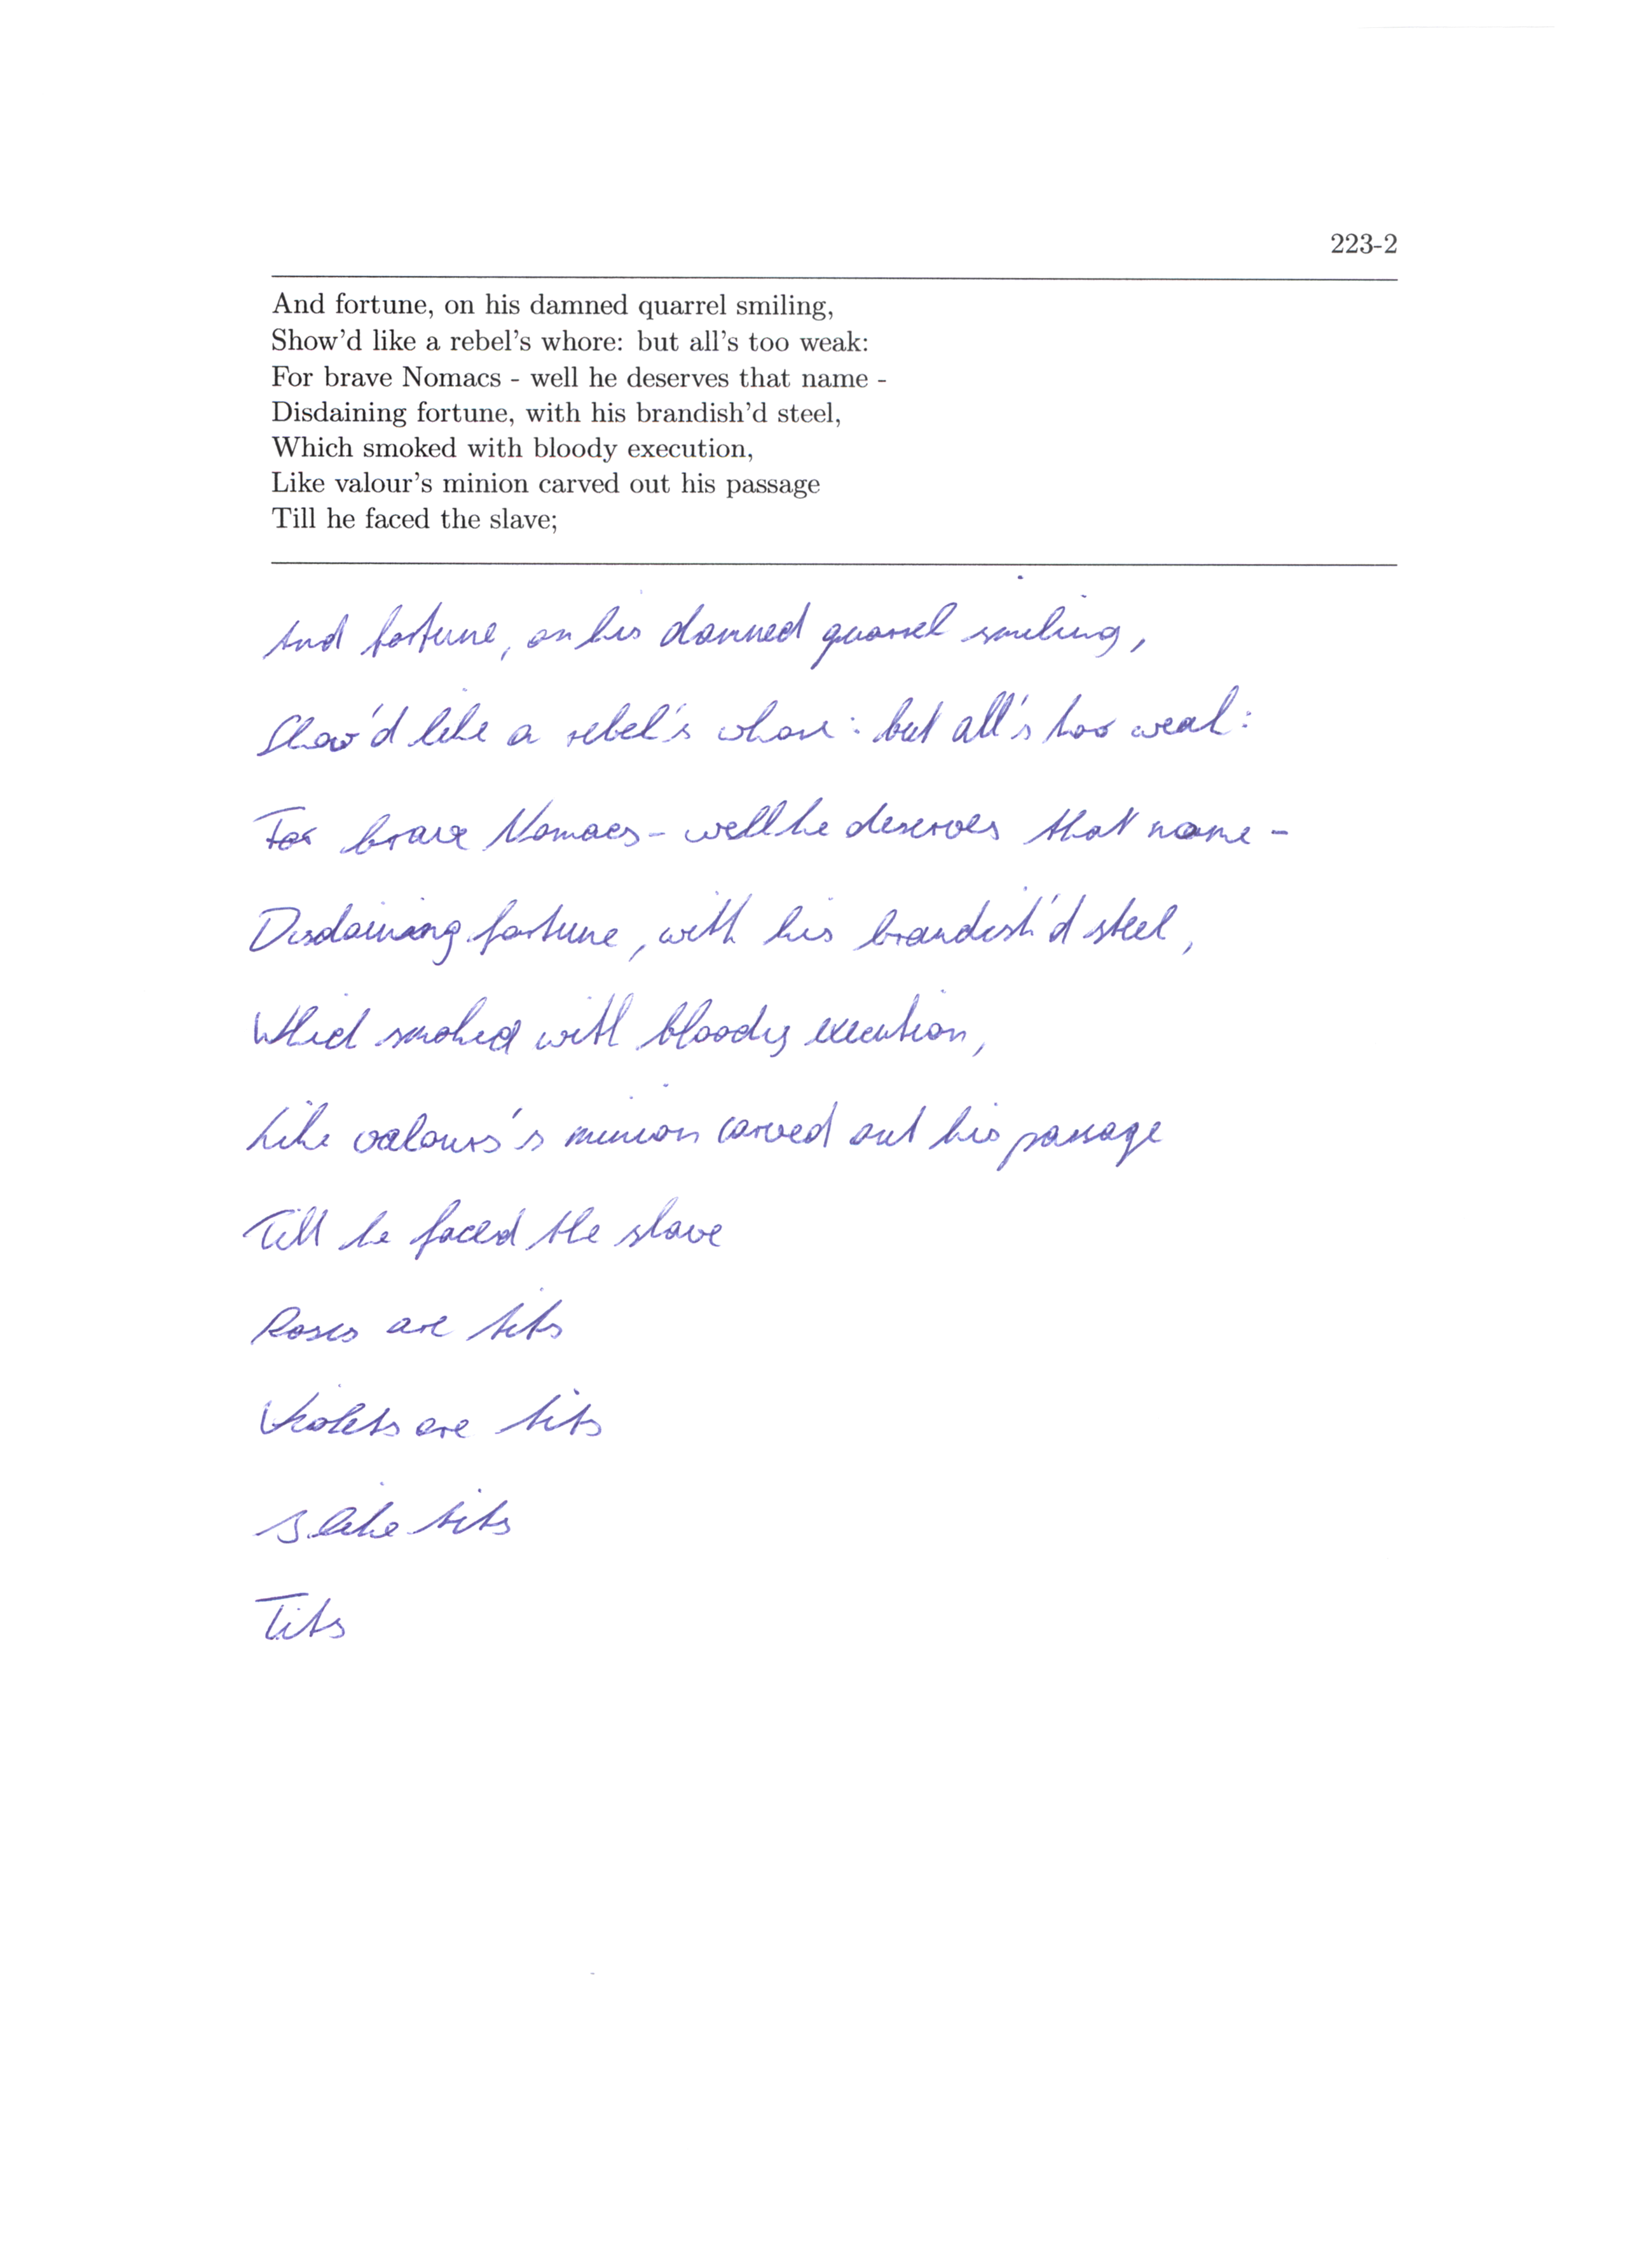 223-2
And fortune, on his damned quarrel smiling,
Show'd like a rebel's whore: but all's too weak:
For brave Nomacs - well he deserves that name -
Disdaining fortune, with his brandish'd steel,
Which smoked with bloody execution,
Like valour's minion carved out his passage
Till he faced the slave;
And fortune, on his damned quarrel smiling,
Show'd like a rebel's whore: but all's too weak:
For brave Nomacs - well he deserves that name -
Disdaining fortune, with his brandish'd steel,
Which smoked with bloody execution,
Like valours's minion carved out his passage
Till he faced the slave
Roses are tits
Violets are tits
I like tits
Tits